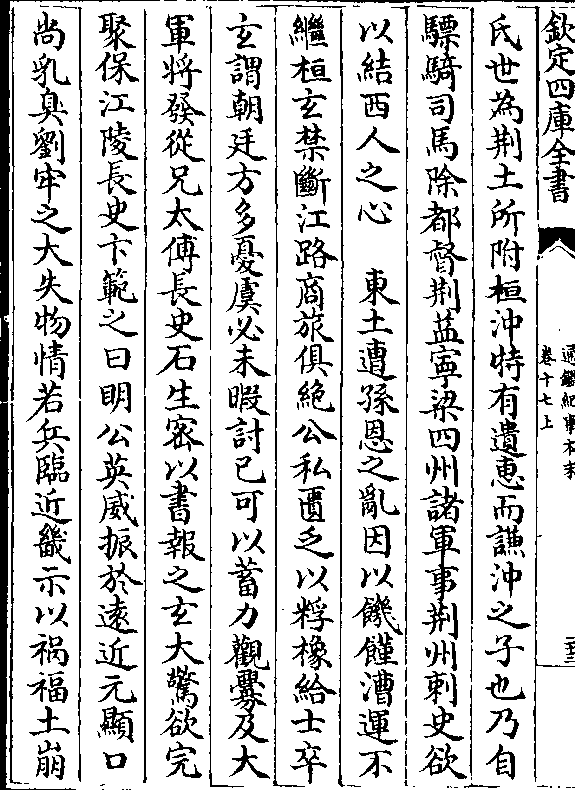 欽定四庫全書
通鑑紀事本末
卷十七上
氏世為荆土所附桓沖特有遺惠而謙沖之子也乃自
驃騎司馬除都督荆益寧梁四州諸軍事荆州刺史欲
以結西人之心　東土遭孫恩之亂因以饑饉漕運不
繼桓玄禁斷江路商旅俱絶公私匱乏以稃橡給士卒
玄謂朝廷方多憂虞必未暇討已可以蓄力觀釁及大
軍將發從兄太傅長史石生密以書報之玄大驚欲完
聚保江陵長史卞範之曰明公英威振於遠近元顯口
尚乳臭劉牢之大失物情若兵臨近畿示以禍福土崩